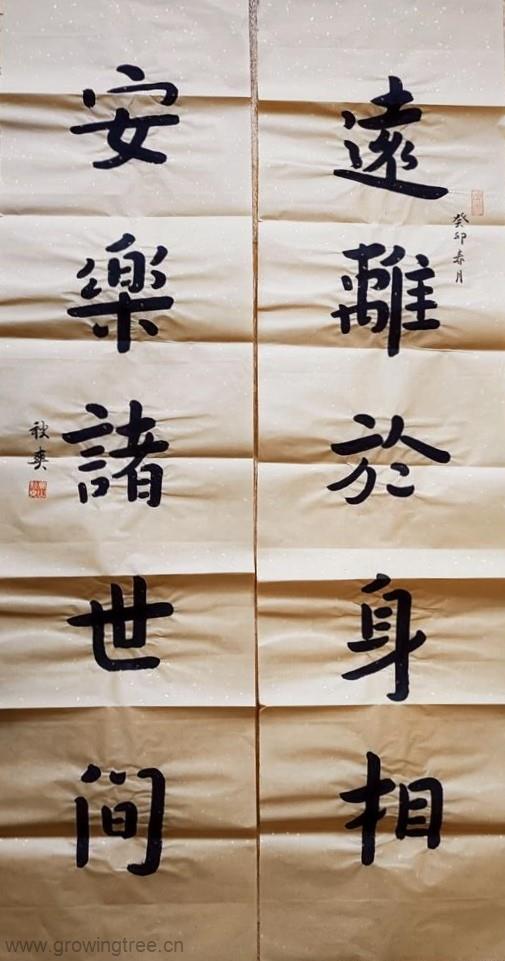 遠離於身相
癸卯春月
安樂諸世间
秋爽
www.growingtree.cn